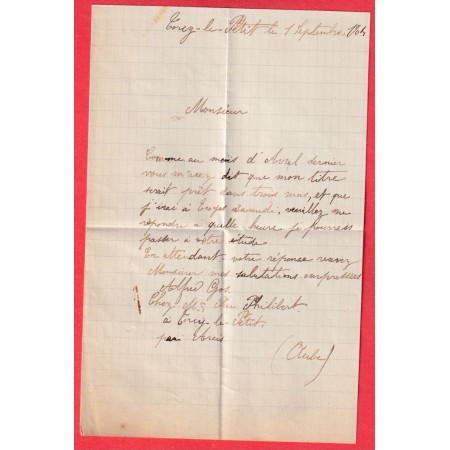 Torcy-le-Petit le 1 Septembre
Monsieur
Comme au mois d'Avril dernier
vous m'avez dit que mon titre
serait prêt dans trois mois, et que
j'irai à Troyes Samedi, veuillez me
répondre à quelle heure je pourrais
passer à votre étude
En attendant votre réponse recevez
Monsieur mes salutations empressées
Alfred
Chez Mr Philibert
à Torcy-le-Petit
par Arcis
(Aube)